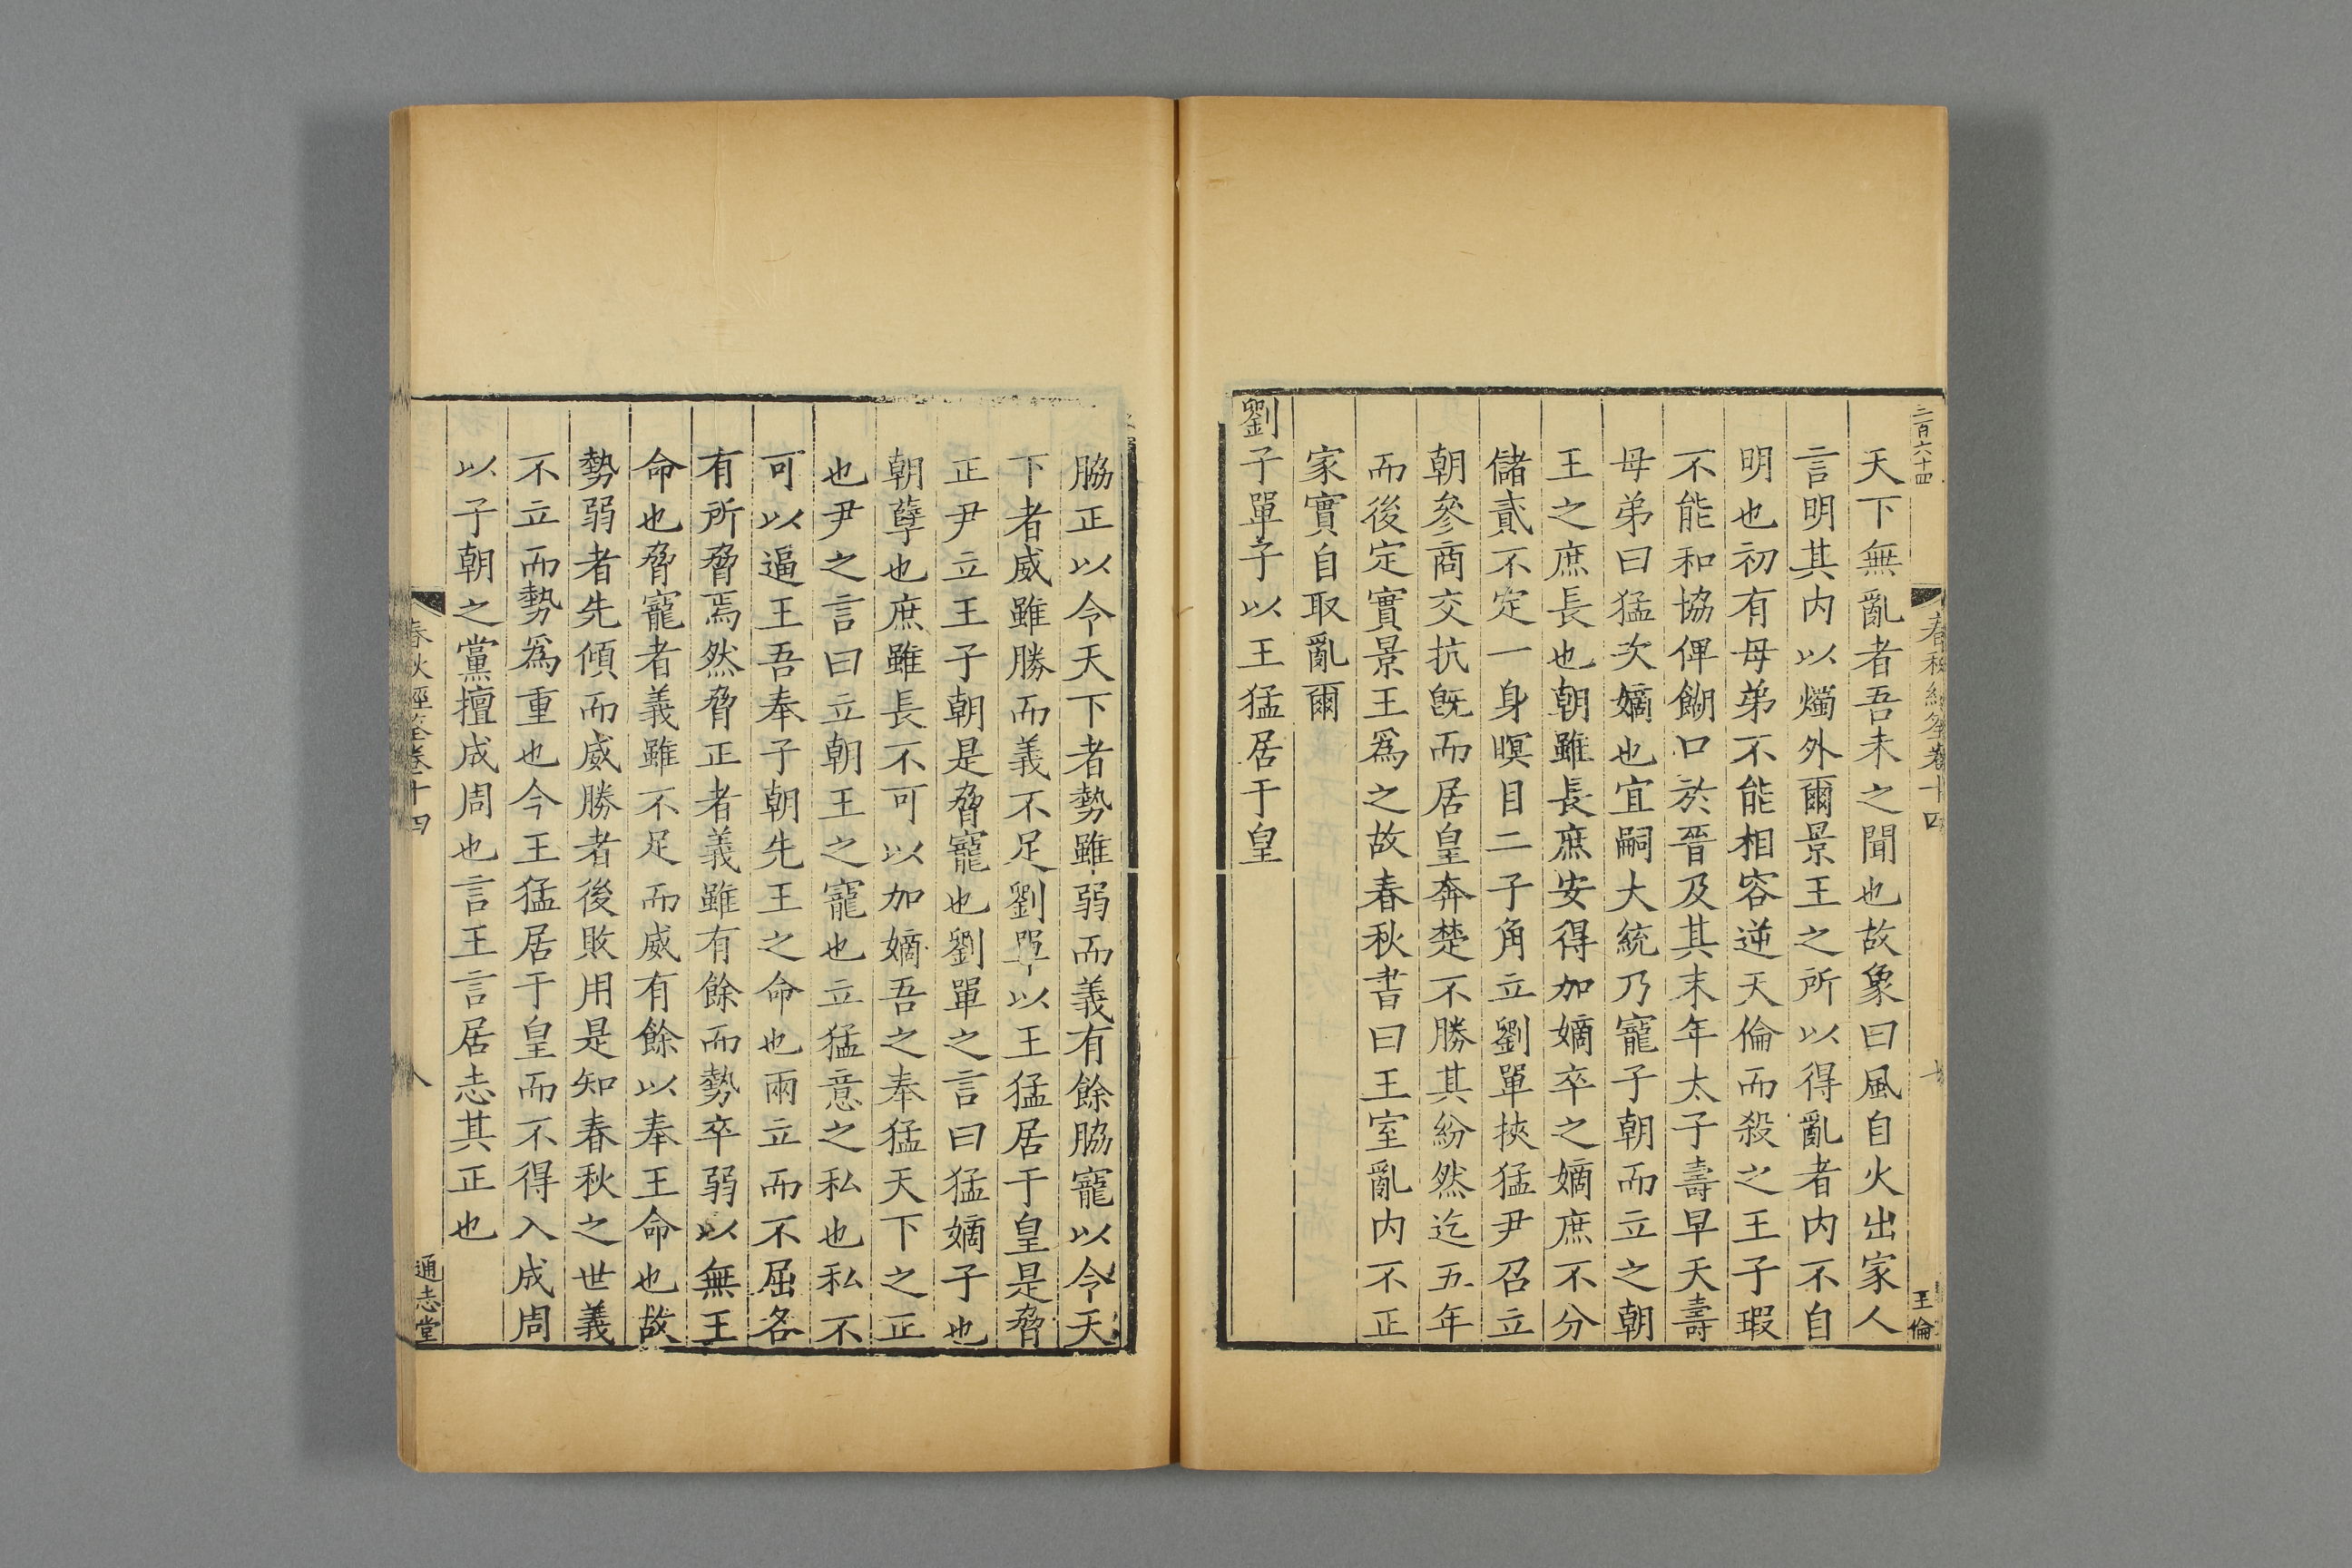 二百六十四
春秋經筌卷十四
王倫
天下無亂者吾未之聞也故象曰風自火出家人
言明其内以燭外爾景王之所以得亂者内不自
明也初有母弟不能相容逆天倫而殺之王子瑕
不能和協俾餬口於晉及其末年太子壽早夭壽
母弟曰猛次嫡也宜嗣大統乃寵子朝而立之朝
王之庶長也朝雖長庶安得加嫡卒之嫡庶不分
儲貳不定一身暝目二子角立劉單挾猛尹召立
朝參商交抗旣而居皇奔楚不勝其紛然迄五年
而後定實景王爲之故春秋書曰王室亂内不正
家實自取亂爾
劉子單子以王猛居于皇
脇正以令天下者勢雖弱而義有餘脇寵以令天
下者威雖勝而義不足劉單以王猛居于皇是脅
正尹立王子朝是脅寵也劉單之言曰猛嫡子也
朝孽也庶雖長不可以加嫡吾之奉猛天下之正
也尹之言曰立朝王之寵也立猛意之私也私不
可以逼王吾奉子朝先王之命也兩立而不屈各
有所脅焉然脅正者義雖有餘而勢卒弱以無王
命也脅寵者義雖不足而威有餘以奉王命也故
勢弱者先傾而威勝者後敗用是知春秋之世義
不立而勢爲重也今王猛居于皇而不得入成周
以子朝之黨擅成周也言王言居志其正也
春秋經筌卷十四
八
通志堂